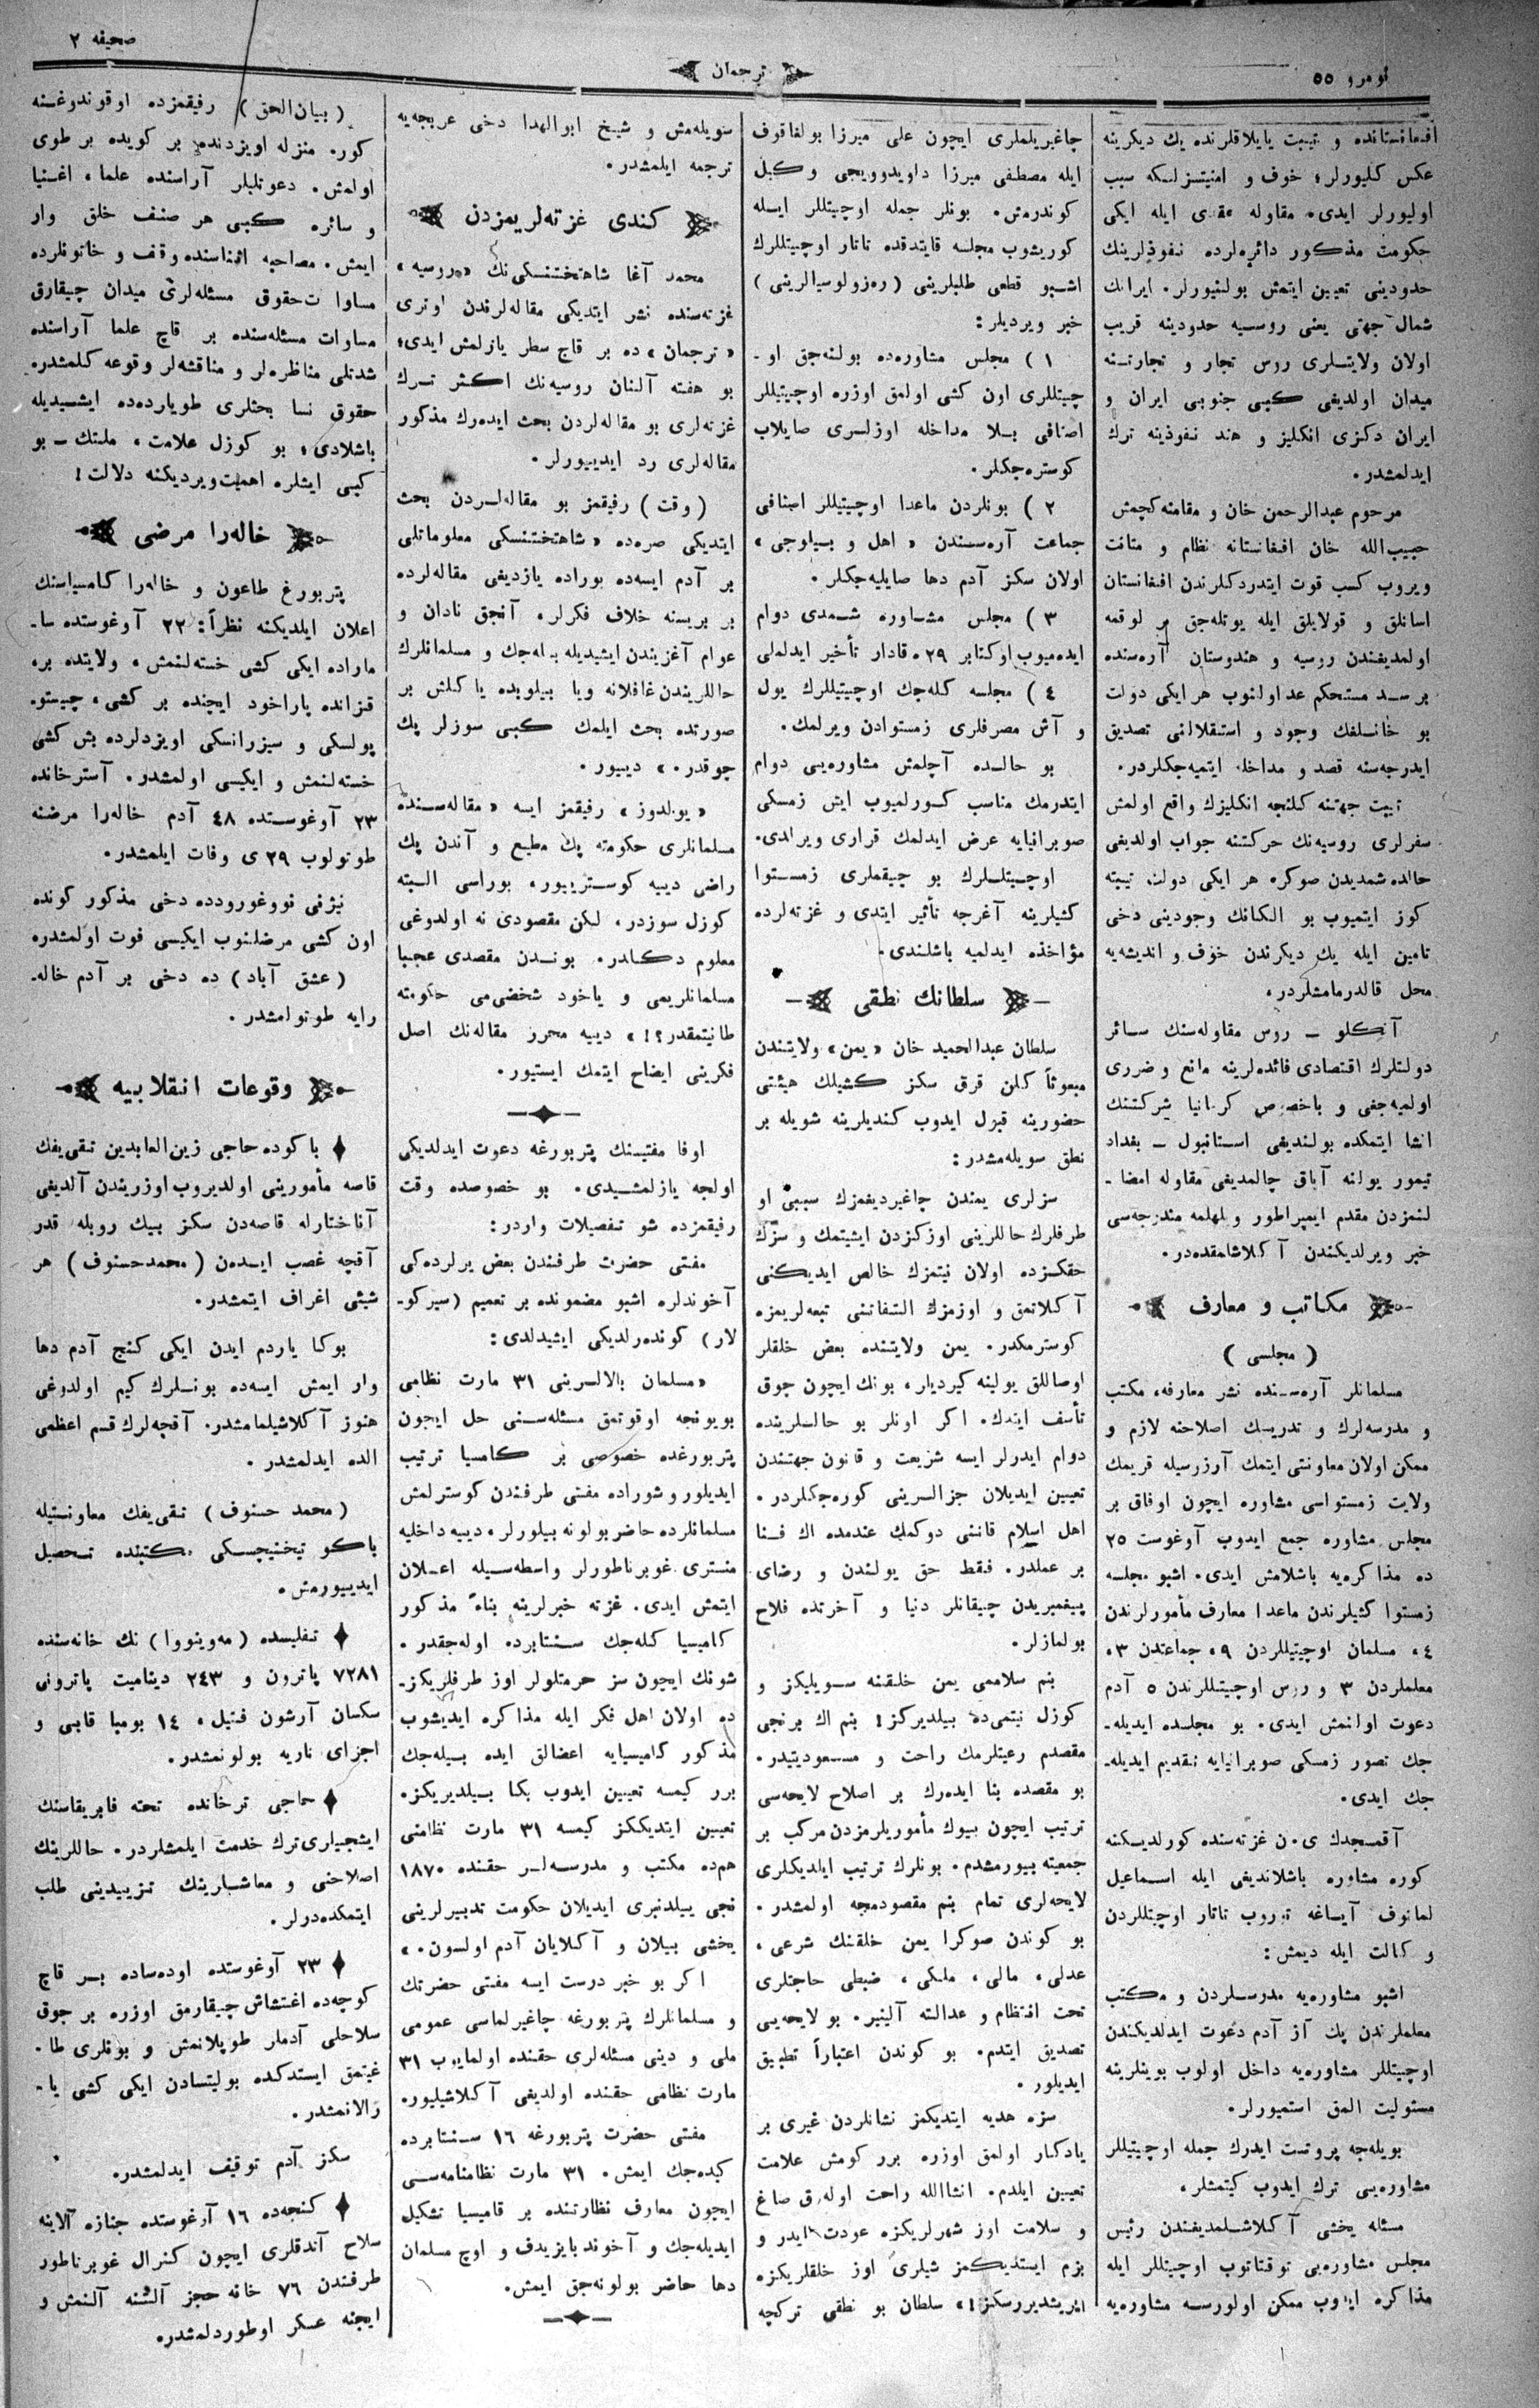 نومرو ٥٥
ترجمان
صحيفه ٢
افغانستانده و تيبت يايلاقلرنده يك ديكرينه
عكس كليورلر، خوف و امنيتسزلكه سبب
اوليورلر ايدى. مقاوله عقدى ايله ايكى
حكومت مذكور دائره‌لرده نفوذلرينك
حدودينى تعيين ايتمش بولنيورلر. ايرانك
شمال جهتى يعنى روسيه حدودينه قريب
اولان ولايتلرى روس تجار و تجارتنه
ميدان اولديغى كبى جنوبى ايران و
ايران دكزى انكليز و هند نفوذينه ترك
ايدلمشدر.
مرحوم عبدالرحمن خان و مقامنه كچمش
حبيب‌الله خان افغانستانه نظام و متانت
ويروب كسب قوت ايتدردكلرندن افغانستان
اسانلق و قولايلق ايله يوتله‌جق بر لوقمه
اولمديغندن روسيه و هندوستان آره‌سنده
بر سد مستحكم عد اولنوب هر ايكى دولت
بو خانلغك وجود و استقلالنى تصديق
ايدرجه‌سنه قصد و مداخله ايتميه‌جكلردر.
تيبت جهتنه كلنجه انكليزك واقع اولمش
سفرلرى روسيه‌نك حركتنه جواب اولديغى
حالده شمديدن صوكره هر ايكى دولت تيبته
كوز ايتميوب بو الكانك وجودينى دخى
تامين ايله يك ديكرندن خوف و انديشه‌يه
محل قالدرمامشلردر.
آنكلو ـ روس مقاوله‌سنك سائر
دولتلرك اقتصادى فائده‌لرينه مانع و ضررى
اولميه‌جغى و باخصوص كرمانيا شركتنك
انشا ايتمكده بولنديغى استانبول ـ بغداد
تيمور يولنه آياق چالمديغى مقاوله امضا ـ
لنمزدن مقدم ايمپراطور و لهلمه مندرجه‌سى
خبر ويرلديكندن آكلاشامقده‌در.
مكاتب و معارف
( مجلسى )
مسلمانلر آره‌سنده نشر معارفه، مكتب
و مدرسه‌لرك و تدريسك اصلاحنه لازم و
ممكن اولان معاونتى ايتمك آرزوسيله قريمك
ولايت زمستواسى مشاوره ايچون اوفاق بر
مجلس مشاوره جمع ايدوب آوغوست ٢٥
ده مذاكره‌يه باشلامش ايدى. اشبو مجلسه
زمستوا كشيلرندن ماعدا معارف مأمورلرندن
٤، مسلمان اوچيتللردن ٩، جماعتدن ٣،
معلملردن ٣ و روس اوچيتللرندن ٥ آدم
دعوت اولنمش ايدى. بو مجلسده ايديله‌ـ
جك تصور زمسكى صوبرانيايه تقديم ايديله‌ـ
جك ايدى.
آقمسجدك ى.ن غزته‌سنده كورلديكنه
كوره مشاوره باشلانديغى ايله اسماعيل
لمانوف آياغه توروب تاتار اوچيتللردن
وكالت ايله ديمش:
اشبو مشاوره‌يه مدرسلردن و مكتب
معلملرندن پك آز آدم دعوت ايدلديكندن
اوچيتللر مشاوره‌يه داخل اولوب بوينلرينه
مسئوليت المق استميورلر.
بويله‌جه پروتست ايدرك جمله اوچيتيللر
مشاوره‌يى ترك ايدوب كيتمشلر.
مسئله يخشى آكلاشلمديغندن رئيس
مجلس مشاوره‌يى توقتاتوب اوچيتللر ايله
مذاكره ايدوب ممكن اولورسه مشاوره‌يه
چاغيريلملرى ايچون على ميرزا بولغاقوف
ايله مصطفى ميرزا داويدوويچى وكيل
كوندرمش. بونلر جمله اوچيتللر ايله
كوريشوب مجلسه قايتدقده تاتار اوچيتللرك
اشبو قطعى طلبلرينى (ره‌زولوسيالرينى)
خبر ويرديلر:
١ ) مجلس مشاوره‌ده بولنه‌جق او ـ
چيتللرى اون كشى اولمق اوزره اوچيتيللر
اصنافى بلا مداخله اوزلرى صايلاب
كوستره‌جكلر.
٢ ) بونلردن ماعدا اوچيتيللر اصنافى
جماعت آره‌سندن «اهل و بيلوجى»
اولان سكز آدم دها صايليه‌جكلر.
٣ ) مجلس مشاوره شمدى دوام
ايده‌ميوب اوكتابر ٢٩ـه قادار تأخير ايدلملى
٤ ) مجلسه كله‌جك اوچيتيللرك يول
و آش مصرفلرى زمستوادن ويرلمك.
بو حالده آچلمش مشاوره‌يى دوام
ايتدرمك مناسب كورلميوب ايش زمسكى
صوبرانيايه عرض ايدلمك قرارى ويرلدى.
اوچيتللرك بو چيقملرى زمستوا
كشيلرينه آغرجه تأثير ايتدى و غزته‌لرده
مؤاخذه ايدلميه باشلندى.
سلطانك نطقى
سلطان عبدالحميد خان «يمن» ولايتندن
مبعوثاً كلن قرق سكز كشيلك هيئتى
حضورينه قبول ايدوب كنديلرينه شويله بر
نطق سويله‌مشدر:
سزلرى يمندن چاغيرديغمزك سببى او
طرفلرك حاللرينى اوزكزدن ايشيتمك و سزك
حقكزده اولان نيتمزك خالص ايديكنى
آكلاتمق و اوزمزك التفاتنى تبعه‌لريمزه
كوسترمكدر. يمن ولايتنده بعض خلقلر
اوصاللق يولينه كيرديلر، بونك ايچون چوق
تأسف ايتدك. اكر اونلر بو حاللرينده
دوام ايدرلر ايسه شريعت و قانون جهتندن
تعيين ايديلان جزالرينى كوره‌جكلردر.
اهل اسلام قاننى دوكمك عندمده اك فنا
بر عملدر. فقط حق يولندن و رضاى
پيغمبريدن چيقانلر دنيا و آخرتده فلاح
بولمازلر.
بنم سلاممى يمن خلقنه سويليكز و
كوزل نيتمى‌ده بيلديركز! بنم اك برنجى
مقصدم رعيتلرمك راحت و مسعوديتيدر.
بو مقصده بنا ايده‌رك بر اصلاح لايحه‌سى
ترتيب ايچون بيوك مأموريلرمزدن مركب بر
جمعيته بيورمشدم. بونلرك ترتيب ايلديكلرى
لايحه‌لرى تمام بنم مقصودمجه اولمشدر.
بو كوندن صوكرا يمن خلقنك شرعى،
عدلى، مالى، ملكى، ضبطى حاجتلرى
تحت انتظام و عدالته آلنير. بو لايحه‌يى
تصديق ايتدم. بو كوندن اعتباراً تطبيق
ايديلور.
سزه هديه ايتديكمز نشانلردن غيرى بر
يادكار اولمق اوزره برر كومش علامت
تعيين ايلدم. انشاالله راحت اوله‌رق صاغ
و سلامت اوز شهرلريكزه عودت ايدر و
بزم ايستديكمز شيلرى اوز خلقلريكزه
ايريشديررسكز!» سلطان بو نطقى تركچه
سويله‌مش و شيخ ابوالهدا دخى عربجه‌يه
ترجمه ايلمشدر.
كندى غزته‌لريمزدن
محمد آغا شاهتختنسكى‌نك «روسيه»
غزته‌سنده نشر ايتديكى مقاله‌لرندن اوترى
«ترجمان» ده بر قاچ سطر يازلمش ايدى؛
بو هفته آلنان روسيه‌نك اكثر ترك
غزته‌لرى بو مقاله‌لردن بحث ايده‌رك مذكور
مقاله‌لرى رد ايدييورلر.
(وقت) رفيقمز بو مقاله‌لردن بحث
ايتديكى صره‌ده «شاهتختنسكى معلوماتلى
بر آدم ايسه‌ده بوراده يازديغى مقاله‌لرده
بر بريسنه خلاف فكرلر، آنجق نادان و
عوام آغزيندن ايشيديله بيله‌جك و مسلمانلرك
حاللريندن غافلانه ويا بيلوبده ياكلش بر
صورتده بحث ايلمك كبى سوزلر پك
چوقدر.» دييور.
«يولدوز» رفيقمز ايسه «مقاله‌سنده
مسلمانلرى حكومته پك مطيع و آندن پك
راضى دييه كوستريیور، بوراسى البته
كوزل سوزدر، لكن مقصودى نه اولدوغى
معلوم دكلدر. بوندن مقصدى عجبا
مسلمانلريمى و ياخود شخصى‌مى حكومته
طانيتمقدر؟!» دييه محرر مقاله‌نك اصل
فكرينى ايضاح ايتمك ايستيور.
اوفا مفتيسنك پتربورغه دعوت ايدلديكى
اولجه يازلمشيدى. بو خصوصده وقت
رفيقمزده شو تفصيلات واردر:
مفتى حضرت طرفندن بعض يرلرده‌كى
آخوندلره اشبو مضمونده بر تعميم (سيركو ـ
لار) كونده‌رلديكى ايشيدلدى:
«مسلمان بالالرينى ٣١ مارت نظامى
بويونجه اوقوتمق مسئله‌سنى حل ايچون
پتربورغده خصوصى بر كاميسيا ترتيب
ايديلور و شوراده مفتى طرفندن كوسترلمش
مسلمانلرده حاضر بولونه بيلورلر، دييه داخليه
منسترى غوبرناطورلر واسطه‌سيله اعلان
ايتمش ايدى. غزته خبرلرينه بناءً مذكور
كاميسيا كله‌جك سنتابرده اوله‌جقدر.
شونك ايچون سز حرمتلولر اوز طرفلريكز ـ
ده اولان اهل فكر ايله مذاكره ايديشوب
مذكور كاميسيايه اعضالق ايده بيله‌جك
برر كيمسه تعيين ايدوب بكا بيلديريكز.
تعيين ايتديككز كيمسه ٣١ مارت نظامنى
هم‌ده مكتب و مدرسه‌لر حقنده ١٨٧٠
نجى ييلدنبرى ايديلان حكومت تدبيرلرينى
يخشى بيلان و آكلايان آدم اولسون.»
اكر بو خبر درست ايسه مفتى حضرتك
و مسلمانلرك پتربورغه چاغيرلماسى عمومى
ملى و دينى مسئله‌لرى حقنده اولمايوب ٣١
مارت نظامى حقنده اولديغى آكلاشيليور.
مفتى حضرت پتربورغه ١٦ سنتابرده
كيده‌جك ايمش. ٣١ مارت نظامنامه‌سى
ايچون معارف نظارتنده بر قاميسيا تشكيل
ايديله‌جك و آخوند بايزيدف و اوچ مسلمان
دها حاضر بولونه‌جق ايمش.
(بيان‌الحق) رفيقمزده اوقوندوغنه
كوره منزله اويزدنده بر كويده بر طوى
اولمش. دعوتليلر آراسنده علما، اغنيا
و سائره كبى هر صنف خلق وار
ايمش. مصاحبه اثناسنده وقف و خاتونلرده
مساوات حقوق مسئله‌لرى ميدان چيقارق
مساوات مسئله‌سنده بر قاچ علما آراسنده
شدتلى مناظره‌لر و مناقشه‌لر وقوعه كلمشدر.
حقوق نسا بحثلرى طويارده‌ده ايشيديله
باشلادى، بو كوزل علامت، ملتك ـ بو
كبى ايشلره اهميت ويرديكنه دلالت!
خاله‌را مرضى
پتربورغ طاعون و خاله‌را كاميسياسنك
اعلان ايلديكنه نظراً: ٢٢ آوغوستده سا ـ
ماراده ايكى كشى خسته‌لنمش، ولايتده بر،
قزانده پاراخود ايچنده بر كشى، چيستو ـ
پولسكى و سيزرانسكى اويزدلرده بش كشى
خسته‌لنمش و ايكيسى اولمشدر. آسترخانده
٢٣ آوغوستده ٤٨ آدم خاله‌را مرضنه
طوتولوب ٢٩ى وفات ايلمشدر.
نيژنى نووغوروددە دخى مذكور كونده
اون كشى مرضلنوب ايكيسى فوت اولمشدر.
(عشق آباد) ده دخى بر آدم خاله ـ
رايه طوتولمشدر.
وقوعات انقلابيه
باكوده حاجى زين‌العابدين تقى‌يفك
قاصه مأمورينى اولديروب اوزريندن آلديغى
آناختارله قاصه‌دن سكز بيك روبله قدر
آقچه غصب ايدن (محمد حسنوف) هر
شيئى اغراف ايتمشدر.
بوكا ياردم ايدن ايكى كنج آدم دها
وار ايمش ايسه‌ده بونلرك كيم اولدوغى
هنوز آكلاشيلمامشدر. آقچه‌لرك قسم اعظمى
الده ايدلمشدر.
(محمد حسنوف) تقى‌يفك معاونتيله
باكو تيخنيچسكى مكتبنده تحصيل
ايدييورمش.
تفليسده (مه‌وينووا) نك خانه‌سنده
٧٢٨١ پاترون و ٢٤٣ ديناميت پاترونى
سكسان آرشون فتيل، ١٤ بومبا قابى و
اجزاى ناريه بولونمشدر.
حاجى ترخانده تحته فابريقاسنك
ايشجيلرى ترك خدمت ايلمشلردر. حاللرينك
اصلاحنى و معاشلرينك تزييدينى طلب
ايتمكده‌درلر.
٢٣ آوغوستده اوده‌ساده بر قاچ
كوچه‌ده اغتشاش چيقارمق اوزره بر چوق
سلاحلى آدملر طوپلانمش و بونلرى طا ـ
غيتمق ايستدكده پوليتسادن ايكى كشى يا ـ
رالانمشدر.
سكز آدم توقيف ايدلمشدر.
كنجه‌ده ١٦ آوغوستده جنازه آلاينه
سلاح آتدقلرى ايچون كنرال غوبرناطور
طرفندن ٧٦ خانه حجز آلتنه آلنمش و
ايچنه عسكر اوطوردلمشدر.